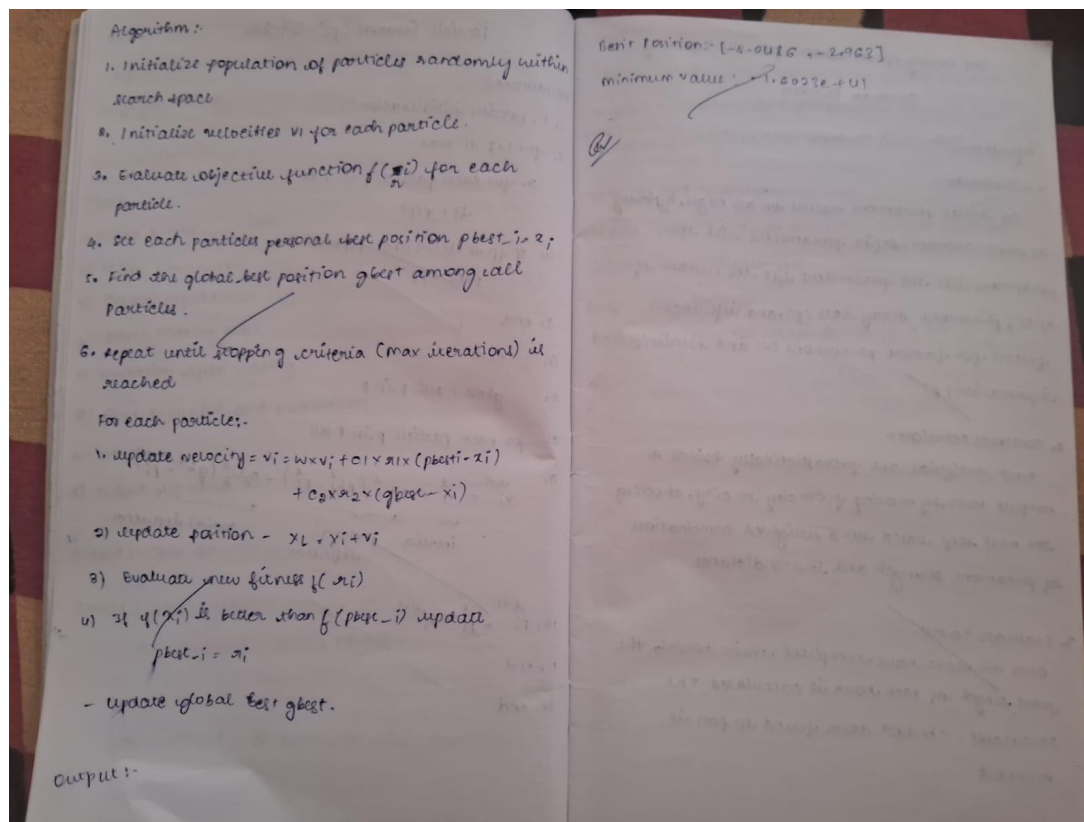 Algorithm:-
1. Initialize population of particles randomly within
search space
2. Initialize velocities vi for each particle.
3. Evaluate objective function f(xi) for each
particle.
4. Set each particles personal best position pbest_i = xi
5. Find the global best position gbest among all
Particles.
6. Repeat until stopping criteria (max iterations) is
reached
For each particle:-
1. update velocity = vi = w×vi + c1 × r1 × (pbesti - xi)
+ c2 × r2 × (gbest - xi)
2) update position - xi = xi + vi
3) Evaluate new fitness f(xi)
4) If f(xi) is better than f(pbest_i) update
pbest_i = xi
- update global best gbest.
Output:-
Best Position:-
minimum value: